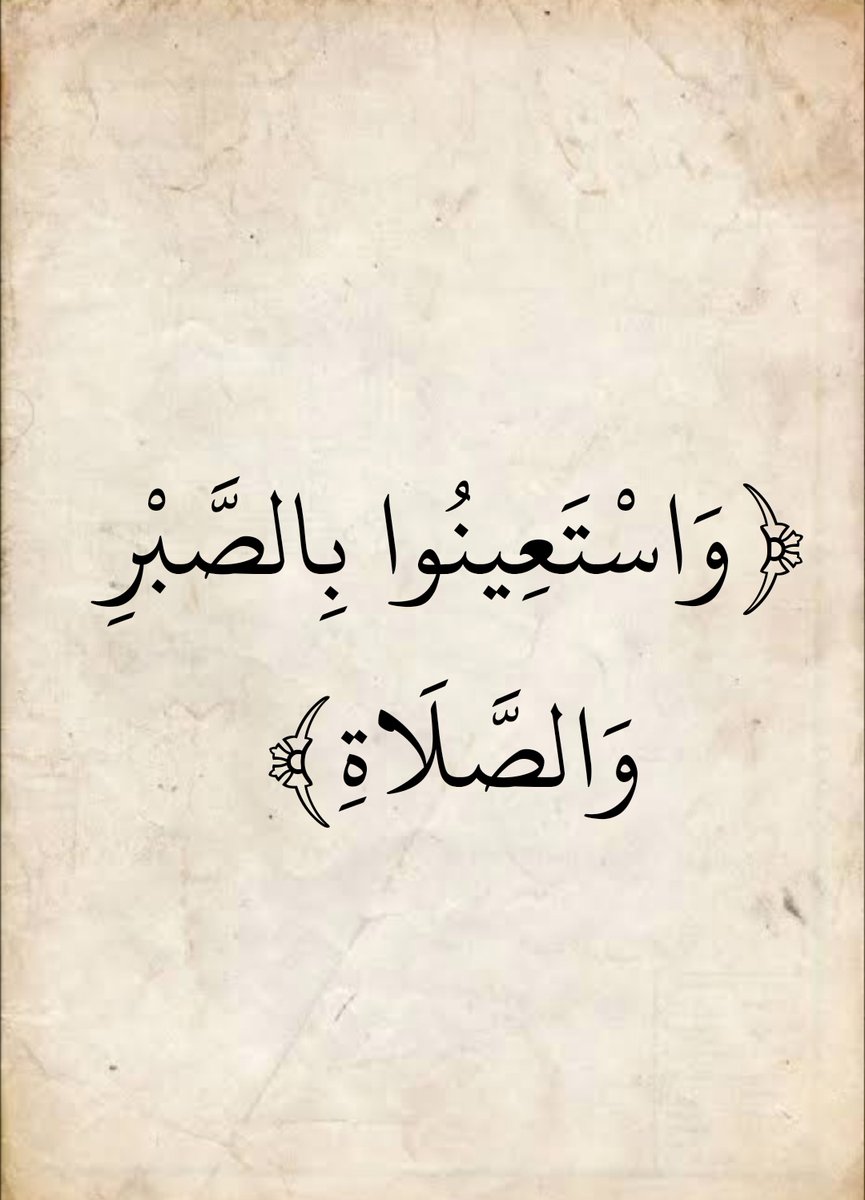 ﴿ وَاسْتَعِينُوا بِالصَّبْرِ
وَالصَّلَاةِ ﴾